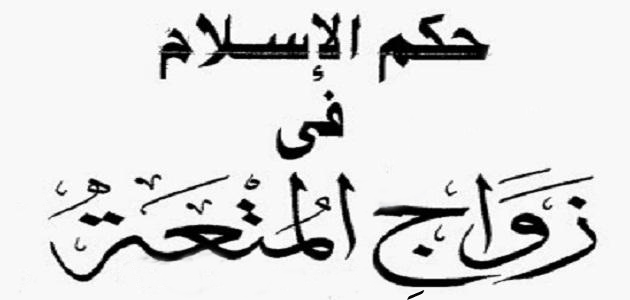 حكم الإسلام
فى
زَوَاجِ المُتْعَةُ